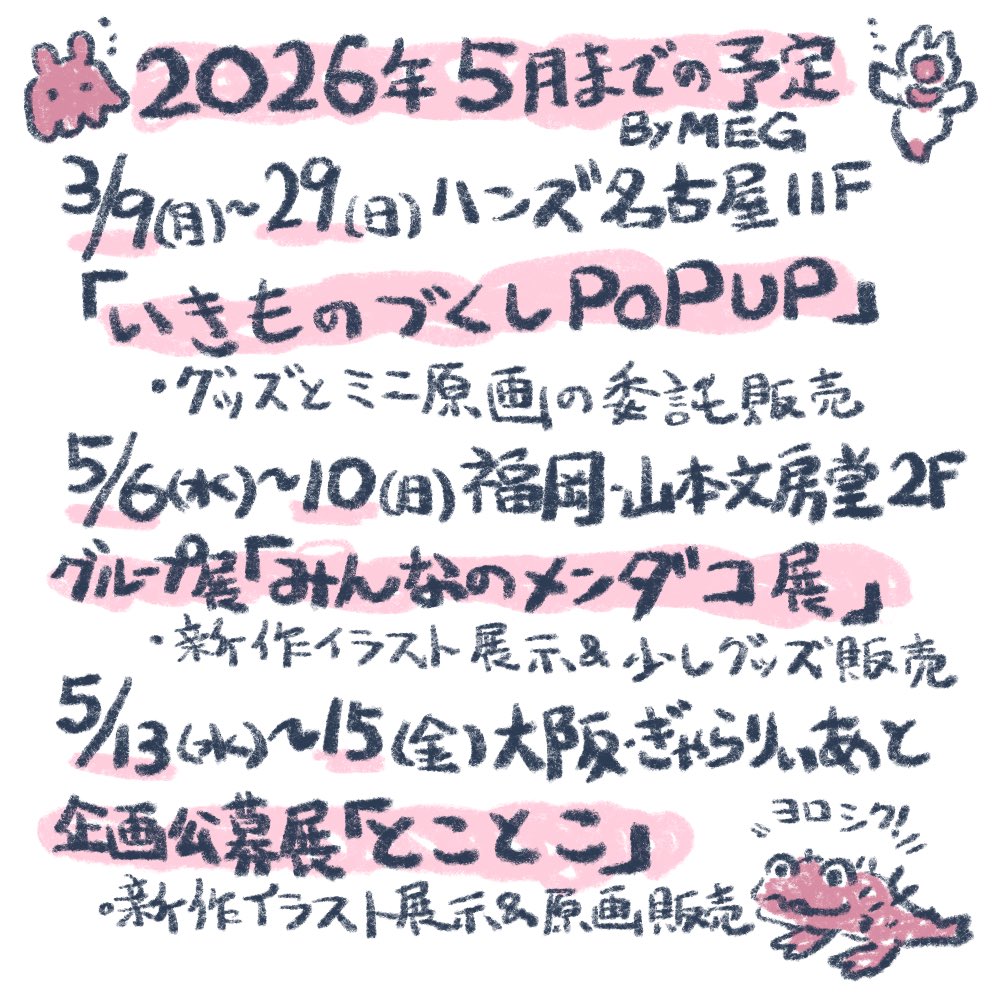 2026年5月までの予定
By MEG
3/9(月)~29(日)ハンズ名古屋11F
「いきものづくしPOPUP」
・グッズとミニ原画の委託販売
5/6(水)~10(日)福岡・山本文房堂2F
グループ展「みんなのメンダコ展」
・新作イラスト展示&少しグッズ販売
5/13(水)~15(金)大阪・ぎゃらりぃあと
企画公募展「とことこ」
・新作イラスト展示&原画販売
ヨロシク!